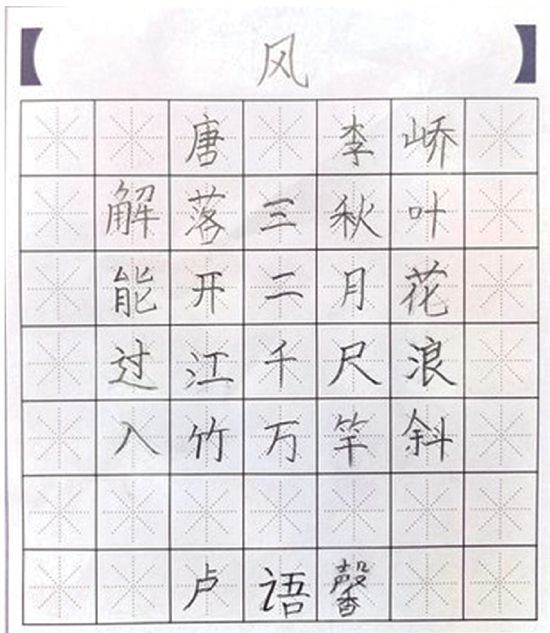 【风】
唐 李峤
解落三秋叶
能开二月花
过江千尺浪
入竹万竿斜
卢语馨